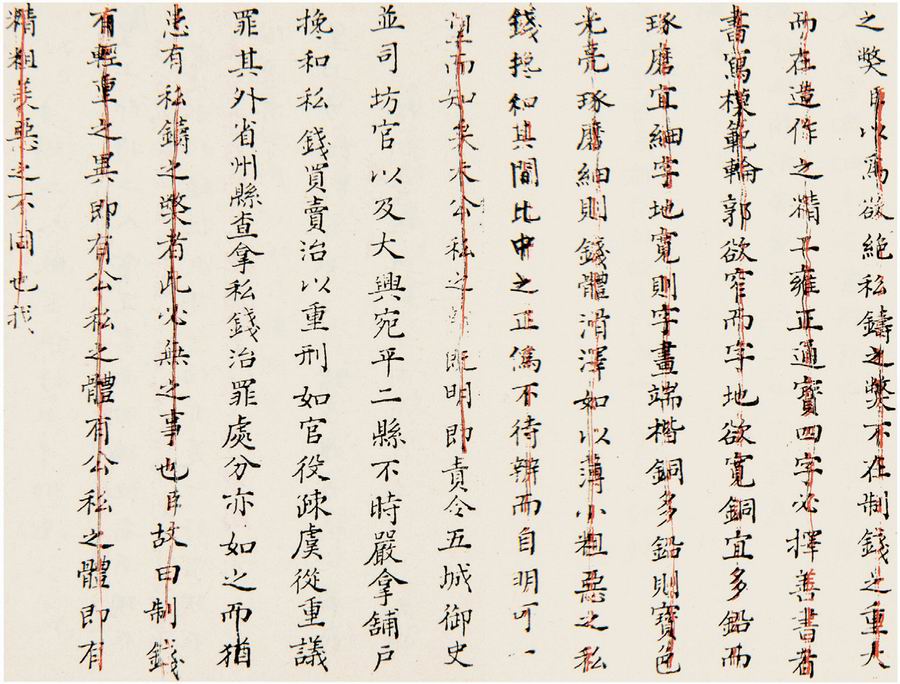 之弊臣以爲欲絶私鑄之弊不在制錢之重大
而在造作之精工雍正通寳四字必擇善書者
書寫模範輪郭欲窄而字地欲寛銅宜多鉛而
琢磨宜細字地寛則字畫端楷銅多鉛則寳色
光亮琢磨細則錢體滑澤如以薄小粗惡之私
錢搀和其間比中之正僞不待辨而自明可一
望而知矣夫公私之既明即責令五城御史
並司坊官以及大興宛平二縣不時嚴拿舖戸
搀和私錢買賣治以重刑如官役疎虞從重議
罪其外省州縣查拿私錢治罪處分亦如之而猶
患有私鑄之弊者此必無之事也臣故曰制錢
有輕重之異即有公私之體有公私之體即有
精粗美惡之不同也我